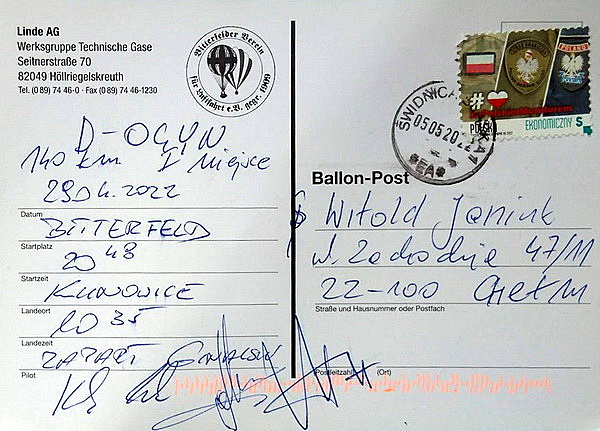 Linde AG
Werksgruppe Technische Gase
Seitnerstraße 70
82049 Höllriegelskreuth
Tel. (0 89) 74 46-0 · Fax (0 89) 74 46-1230
Bitterfelder Verein
für Luftfahrt e.V. gegr. 1909
D-OGYN
140 km I miejsce
29.04.2022
Datum
BITTERFELD
Startplatz
20 48
Startzeit
KLINOWICE
Landeort
10 35
Landezeit
ZAPART
Pilot
POLAND
#
POLSKA
EKONOMICZNY S
ŚWIDNICA
05 05 20
Ballon-Post
Witold Janiuk
ul. Zachodnia 47/11
22-100 Chełm
Straße und Hausnummer oder Postfach
Postleitzahl (Ort)